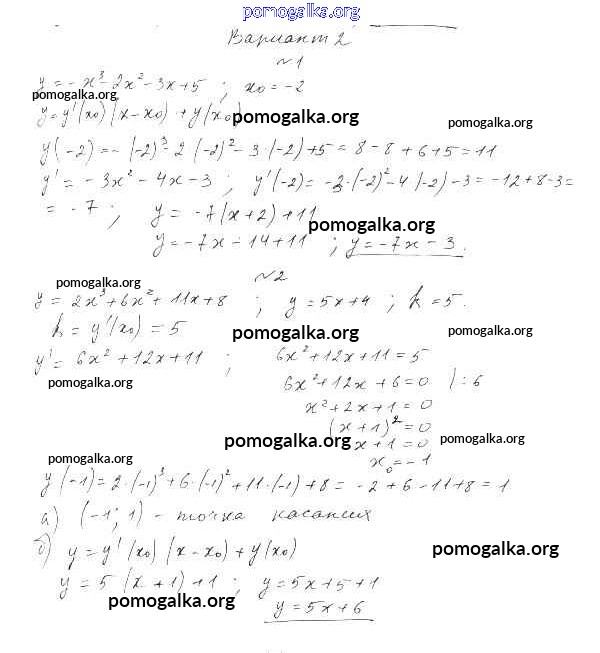 pomogalka.org
Вариант 2
№1
y = -x³-2x²-3x+5 ; x₀ = -2
pomogalka.org
y = y'(x₀)(x-x₀) + y(x₀)
pomogalka.org
pomogalka.org
y(-2) = -(-2)³ 2·(-2)²-3·(-2)+5 = 8-8+6+5 = 11
y' = -3x²-4x-3 ; y'(-2) = -3·(-2)²-4·(-2)-3 = -12+8-3 =
= -7 ; y = -7(x+2)+11
pomogalka.org
y = -7x-14+11 ; y = -7x-3.
№2
pomogalka.org
y = 2x³+6x²+11x+8 ; y = 5x+4 ; k = 5.
k = y'(x₀) = 5
pomogalka.org
pomogalka.org
y' = 6x²+12x+11 ; 6x²+12x+11 = 5
pomogalka.org
6x²+12x+6 = 0 /:6
x²+2x+1 = 0
(x+1)² = 0
pomogalka.org
x+1 = 0
pomogalka.org
pomogalka.org
x₀ = -1
y(-1) = 2·(-1)³+6·(-1)²+11·(-1)+8 = -2+6-11+8 = 1
а) (-1; 1) - точка касания
б) y = y'(x₀)(x-x₀)+y(x₀)
pomogalka.org
y = 5(x+1)+1 ; y = 5x+5+1
pomogalka.org
y = 5x+6